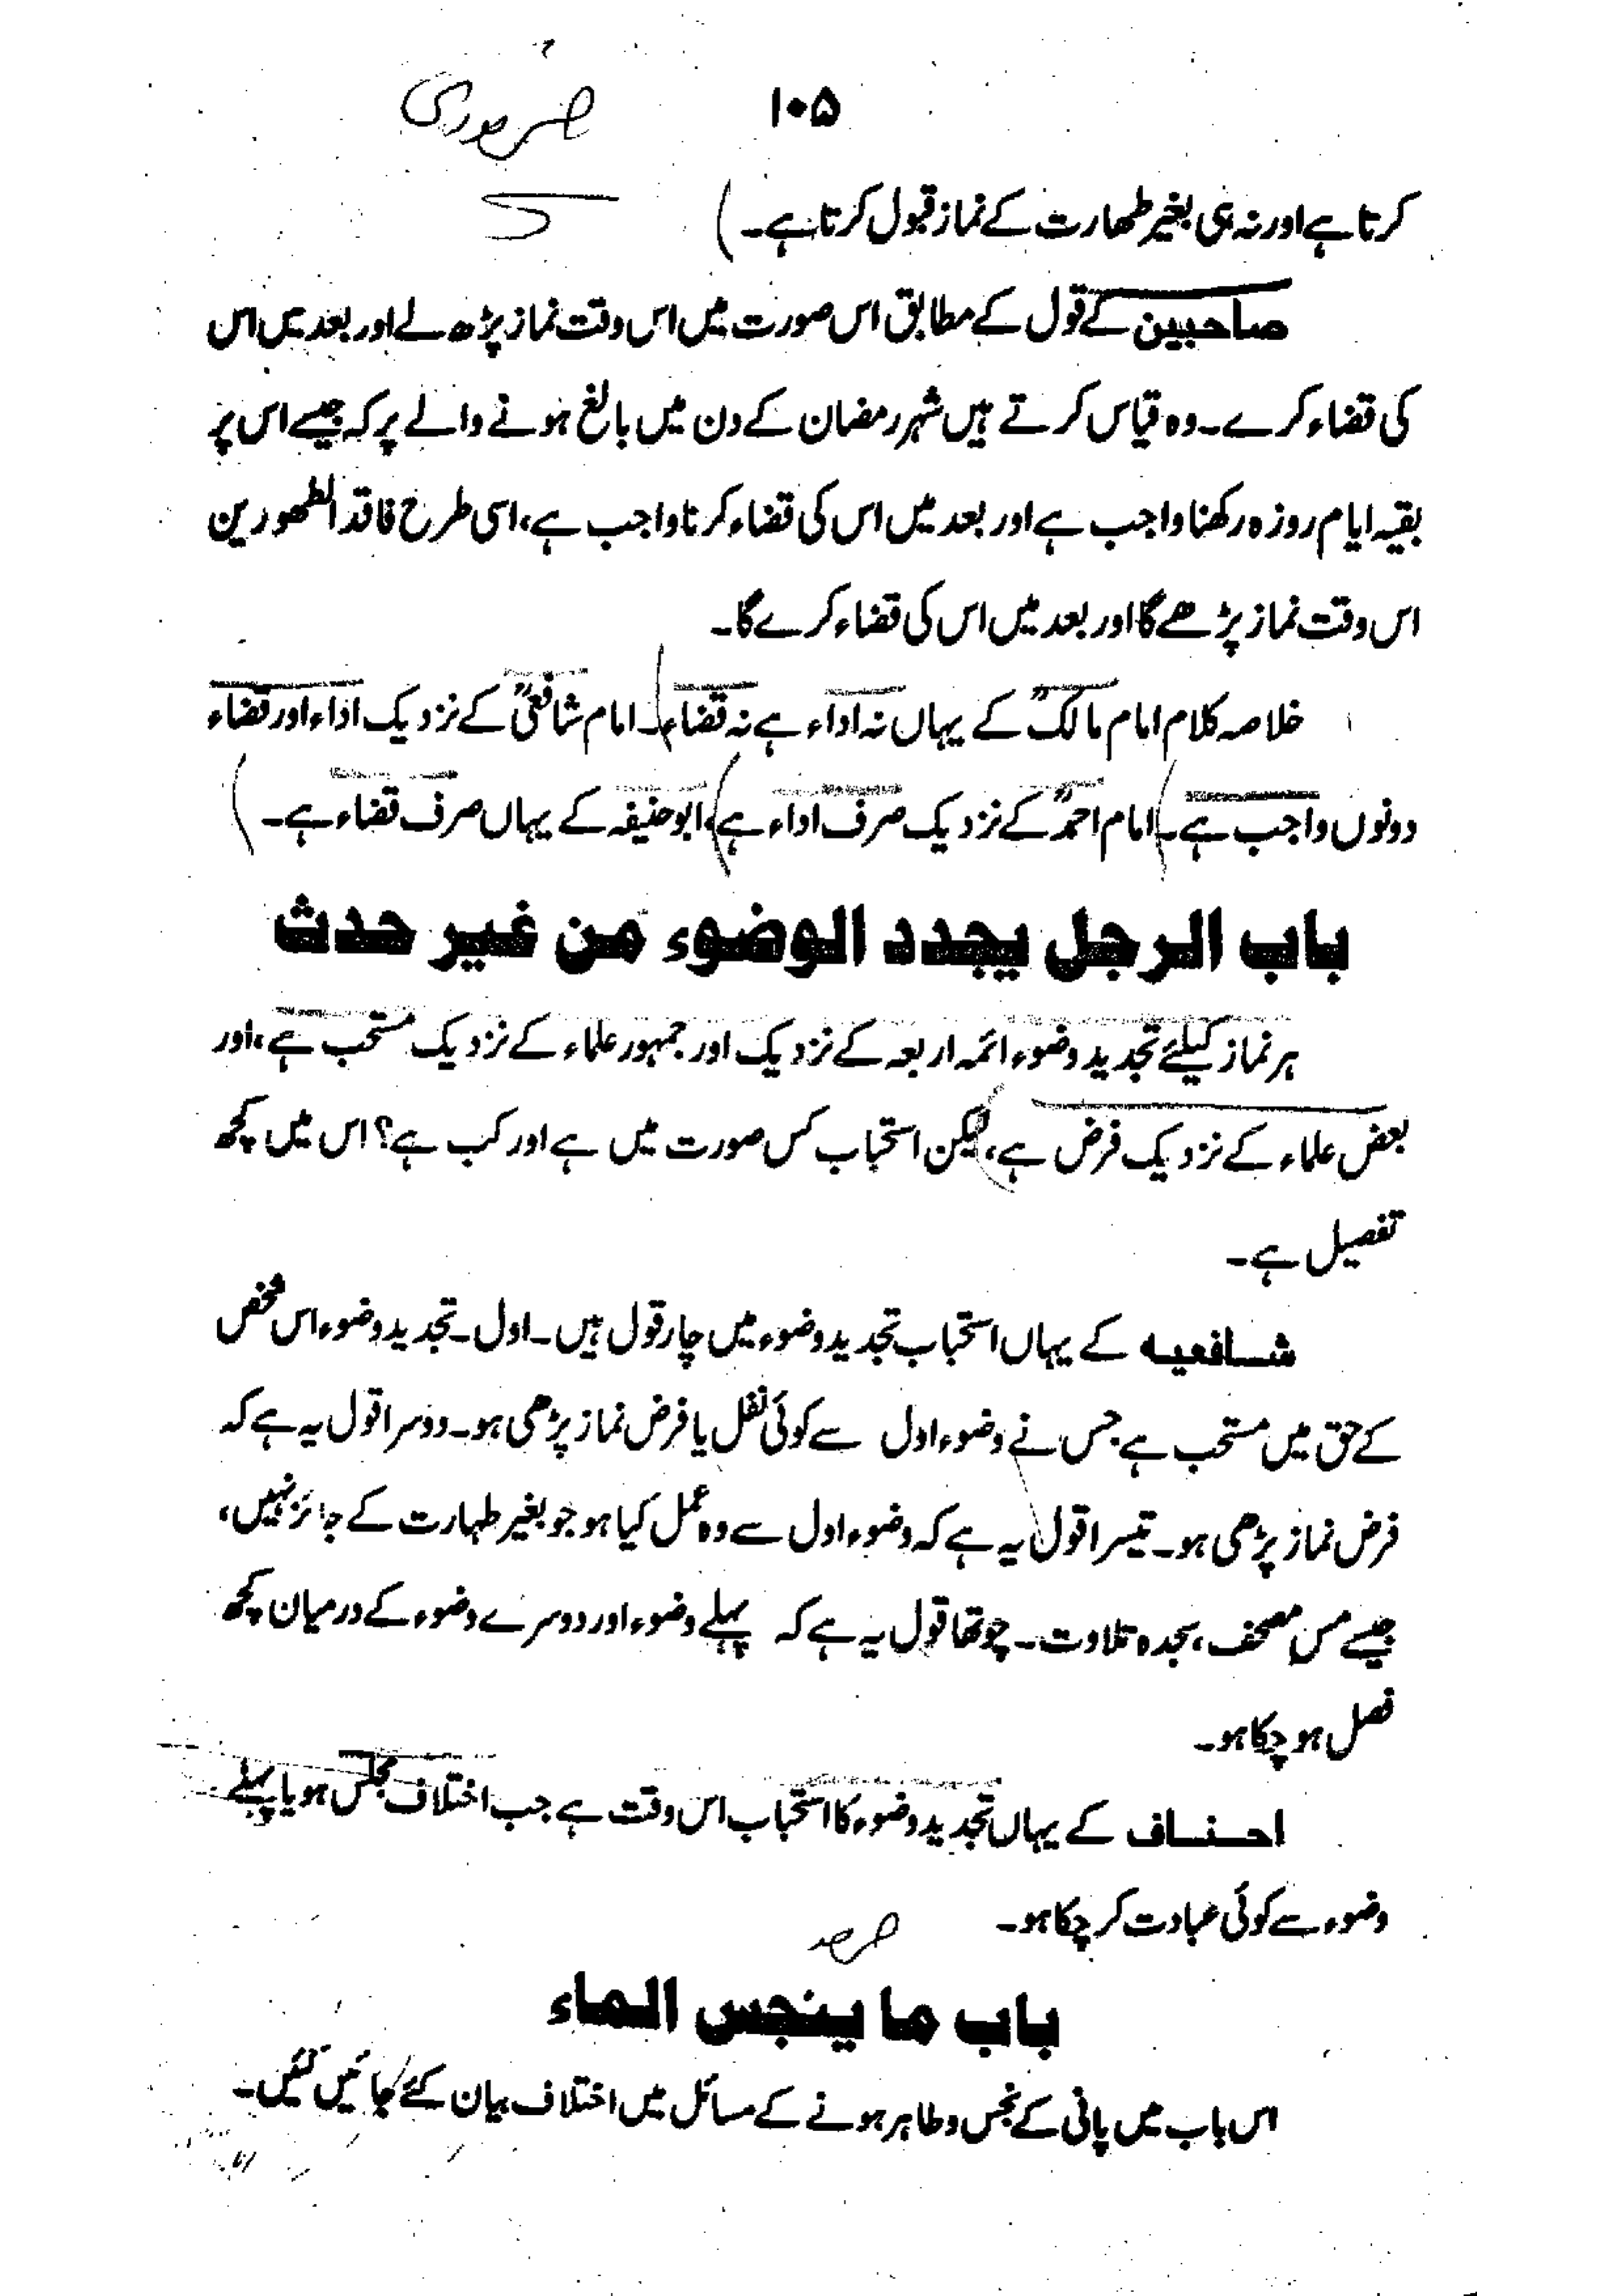 ۱۰۵
ضروری
کرتا ہے اور نہ ہی بغیر طھارت کے نماز قبول کرتا ہے۔)
صاحبین کے قول کے مطابق اس صورت میں اس وقت نماز پڑھ لے اور بعد میں اس
کی قضاء کرے۔ وہ قیاس کرتے ہیں شہر رمضان کے دن میں بالغ ہونے والے پر کہ جیسے اس پر
بقیہ ایام روزہ رکھنا واجب ہے اور بعد میں اس کی قضاء کرنا واجب ہے، اسی طرح فاقد الطھورین
اس وقت نماز پڑھے گا اور بعد میں اس کی قضاء کرے گا۔
خلاصہ کلام امام مالکؒ کے یہاں نہ اداء ہے نہ قضاء۔ امام شافعیؒ کے نزدیک اداء اور قضاء
دونوں واجب ہے۔) امام احمدؒ کے نزدیک صرف اداء ہے)، ابوحنیفہ کے یہاں صرف قضاء ہے۔)
باب الرجل يجدد الوضوء من غير حدث
ہر نماز کیلئے تجدید وضوء ائمہ اربعہ کے نزدیک اور جمہور علماء کے نزدیک مستحب ہے، اور
بعض علماء کے نزدیک فرض ہے، لیکن استحباب کس صورت میں ہے اور کب ہے؟ اس میں کچھ
تفصیل ہے۔
شافعیہ کے یہاں استحباب تجدید وضوء میں چار قول ہیں۔ اول۔ تجدید وضوء اس شخص
کے حق میں مستحب ہے جس نے وضوء اول سے کوئی نفل یا فرض نماز پڑھی ہو۔ دوسرا قول یہ ہے کہ
فرض نماز پڑھی ہو۔ تیسرا قول یہ ہے کہ وضوء اول سے وہ عمل کیا ہو جو بغیر طہارت کے جائز نہیں،
جیسے مس مصحف، سجدہ تلاوت۔ چوتھا قول یہ ہے کہ پہلے وضوء اور دوسرے وضوء کے درمیان کچھ
فصل ہو چکا ہو۔
احناف کے یہاں تجدید وضوء کا استحباب اس وقت ہے جب اختلاف مجلس ہو یا پہلے
وضوء سے کوئی عبادت کر چکا ہو۔
باب ما ينجس الماء
اس باب میں پانی کے نجس و طاہر ہونے کے مسائل میں اختلاف بیان کئے جائیں گئیں۔